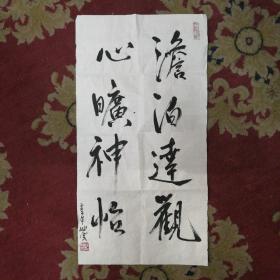 澹泊達觀
心曠神怡